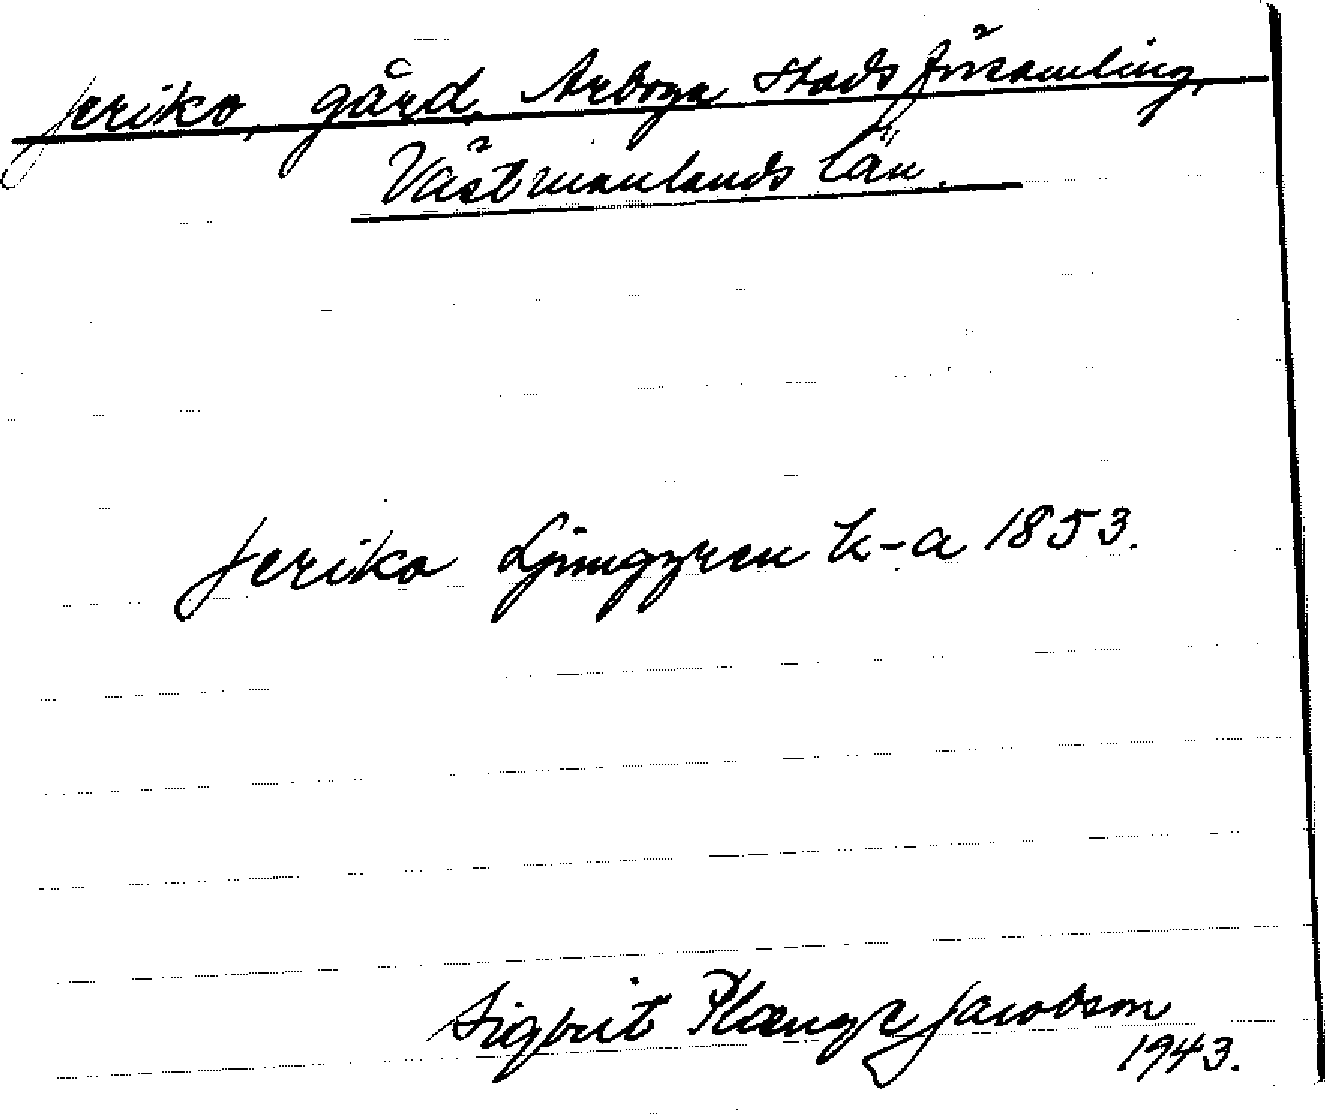 Jeriko, gård, Arboga Stads församling,
Västmanlands län.
Jeriko Ljunggren k-a 1853.
Sigbrit Plænge Jacobson
1943.